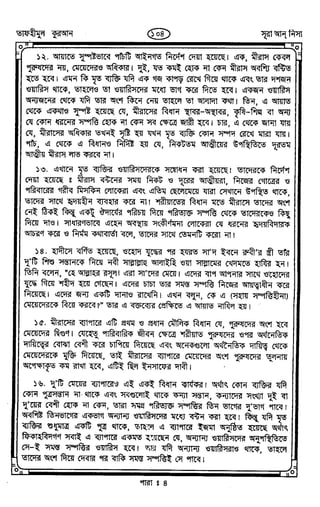 তাফহীমুল কুরআন
১০৪
সূরা আন্ নিসা
১২. আয়াতে সুস্পষ্টভাবে পাঁচটি আইনগত নির্দেশ দেয়া হয়েছে। এক, মীরাস কেবল
পুরুষদের নয়, মেয়েদেরও অধিকার। দুই, যত কমই হোক না কেন মীরাস অবশ্যি বন্টিত
হতে হবে। এমন কি মৃত ব্যক্তি যদি এক গজ কাপড় রেখে গিয়ে থাকে এবং তার দশজন
ওয়ারিস থাকে, তাহলেও তা ওয়ারিসদের মধ্যে ভাগ করে দিতে হবে। একজন ওয়ারিস
অন্যজনের থেকে যদি তার অংশ কিনে নেয় তাহলে তা আলাদা কথা। তিন, এ আয়াত
থেকে একথাও সুস্পষ্ট হয়েছে যে, মীরাসের বিধান স্থাবর-অস্থাবর, কৃষি-শিল্প বা অন্য
যে কোন ধরনের সম্পত্তি হোক না কেন সব ক্ষেত্রে জারী হবে। চার, এ থেকে জানা যায়
যে, মীরাসের অধিকার তখনই সৃষ্টি হয় যখন মৃত ব্যক্তি কোন সম্পদ রেখে মারা যায়।
পাঁচ, এ থেকে এ বিধানও নির্দিষ্ট হয় যে, নিকটতম আত্মীয়ের উপস্থিতিতে দূরতম
আত্মীয় মীরাস লাভ করবে না।
১৩. এখানে মৃত ব্যক্তির ওয়ারিসদেরকে সম্বোধন করা হয়েছে। তাদেরকে নির্দেশ
দেয়া হয়েছে : মীরাস বন্টনের সময় নিকট ও দূরের আত্মীয়রা, নিজের গোত্রের ও
পরিবারের গরীব মিসকিন লোকরা এবং এতিম ছেলেমেয়ে যারা সেখানে উপস্থিত থাকে,
তাদের সাথে হৃদয়হীন ব্যবহার করো না। শরীয়াতের বিধান মতে মীরাসে তাদের অংশ
নেই ঠিকই কিন্তু একটু ঔদার্যের পরিচয় দিয়ে পরিত্যক্ত সম্পত্তি থেকে তাদেরকেও কিছু
দিয়ে দাও। সাধারণভাবে এহেন অবস্থায় সংকীর্ণমনা লোকেরা যে ধরনের হৃদয়বিদারক
আচরণ করে ও নির্মম কথাবার্তা বলে, তাদের সাথে তেমনটি করো না।
১৪. হাদীসে বর্ণিত হয়েছে, ওহোদ যুদ্ধের পর হযরত সা'দ ইবনে রুবী'র স্ত্রী তাঁর
দু'টি শিশু সন্তানকে নিয়ে নবী সাল্লাল্লাহু আলাইহি ওয়া সাল্লামের খেদমতে হাযির হন।
তিনি বলেন, "হে আল্লাহর রসূল! এরা সা'দের মেয়ে। এদের বাপ আপনার সাথে ওহোদের
যুদ্ধে গিয়ে শহীদ হয়ে গেছেন। এদের চাচা তার সমস্ত সম্পত্তি নিজের আয়ত্তাধীন করে
নিয়েছে। এদের জন্য একটি দানাও রাখেনি। এখন বলুন, কে এ (সহায় সম্পত্তিহীনা)
মেয়েদেরকে বিয়ে করবে?" তার এ বক্তব্যের প্রেক্ষিতে এ আয়াত নাযিল হয়।
১৫. মীরাসের ব্যাপারে এটি প্রথম ও প্রধান মৌলিক বিধান যে, পুরুষদের অংশ হবে
মেয়েদের দ্বিগুণ। যেহেতু পারিবারিক জীবন ক্ষেত্রে শরীয়াত পুরুষদের ওপর অর্থনৈতিক
দায়িত্বের বোঝা বেশী করে চাপিয়ে দিয়েছে এবং অনেকগুলো অর্থনৈতিক দায়িত্ব থেকে
মেয়েদেরকে মুক্তি দিয়েছে, তাই মীরাসের ব্যাপারে মেয়েদের অংশ পুরুষদের তুলনায়
অপেক্ষাকৃত কম রাখা হবে, এটিই ছিল ইনসাফের দাবী।
১৬. দু'টি মেয়ের ব্যাপারেও এই একই বিধান কার্যকর। অর্থাৎ কোন ব্যক্তির যদি
কোন পুত্রসন্তান না থাকে এবং সবগুলোই থাকে কন্যা সন্তান, কন্যাদের সংখ্যা দুই বা
দু'য়ের বেশী হোক না কেন, তারা সমগ্র পরিত্যক্ত সম্পত্তির তিন ভাগের দু'ভাগ পাবে।
অবশিষ্ট তিনভাগের একভাগ অন্যান্য ওয়ারিসদের মধ্যে বন্টন করা হবে। কিন্তু যদি মৃত
ব্যক্তির শুধুমাত্র একটি পুত্র থাকে, তাহলে এ ব্যাপারে ইজমা অনুষ্ঠিত হয়েছে অর্থাৎ
ফিকাহবিদগণ সবাই এ ব্যাপারে একমত হয়েছেন যে, অন্যান্য ওয়ারিসদের অনুপস্থিতিতে
সে-ই সমস্ত সম্পত্তির ওয়ারিস হবে। আর যদি অন্যান্য ওয়ারিসরাও থাকে, তাহলে
তাদের অংশ দিয়ে দেবার পর বাকি সমস্ত সম্পত্তিই সে পাবে।
পারা : ৪